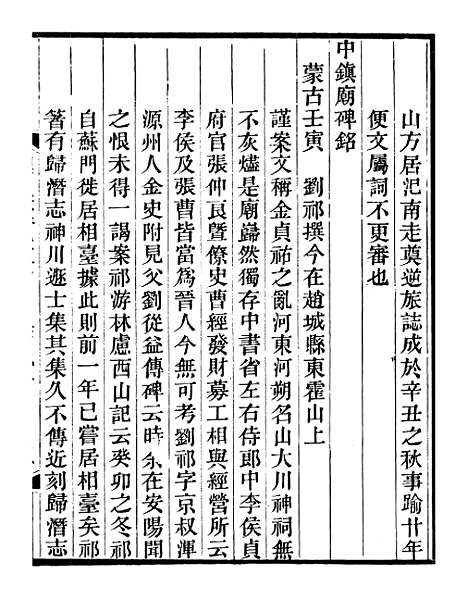 山方居汜南走奠逆旅誌成於辛丑之秋事踰廿年
便文屬詞不更審也
中鎮廟碑銘
蒙古壬寅　劉祁撰今在趙城縣東霍山上
謹案文稱金貞祐之亂河東河朔名山大川神祠無
不灰燼是廟巋然獨存中書省左右侍郎中李侯貞
府官張仲良曁僚史曹經發財募工相與經營所云
李侯及張曹皆當為晉人今無可考劉祁字京叔渾
源州人金史附見父劉從益傳碑云時余在安陽聞
之恨未得一謁案祁游林慮西山記云癸卯之冬祁
自蘇門徙居相臺據此則前一年已嘗居相臺矣祁
箸有歸潛志神川遯士集其集久不傳近刻歸潛志